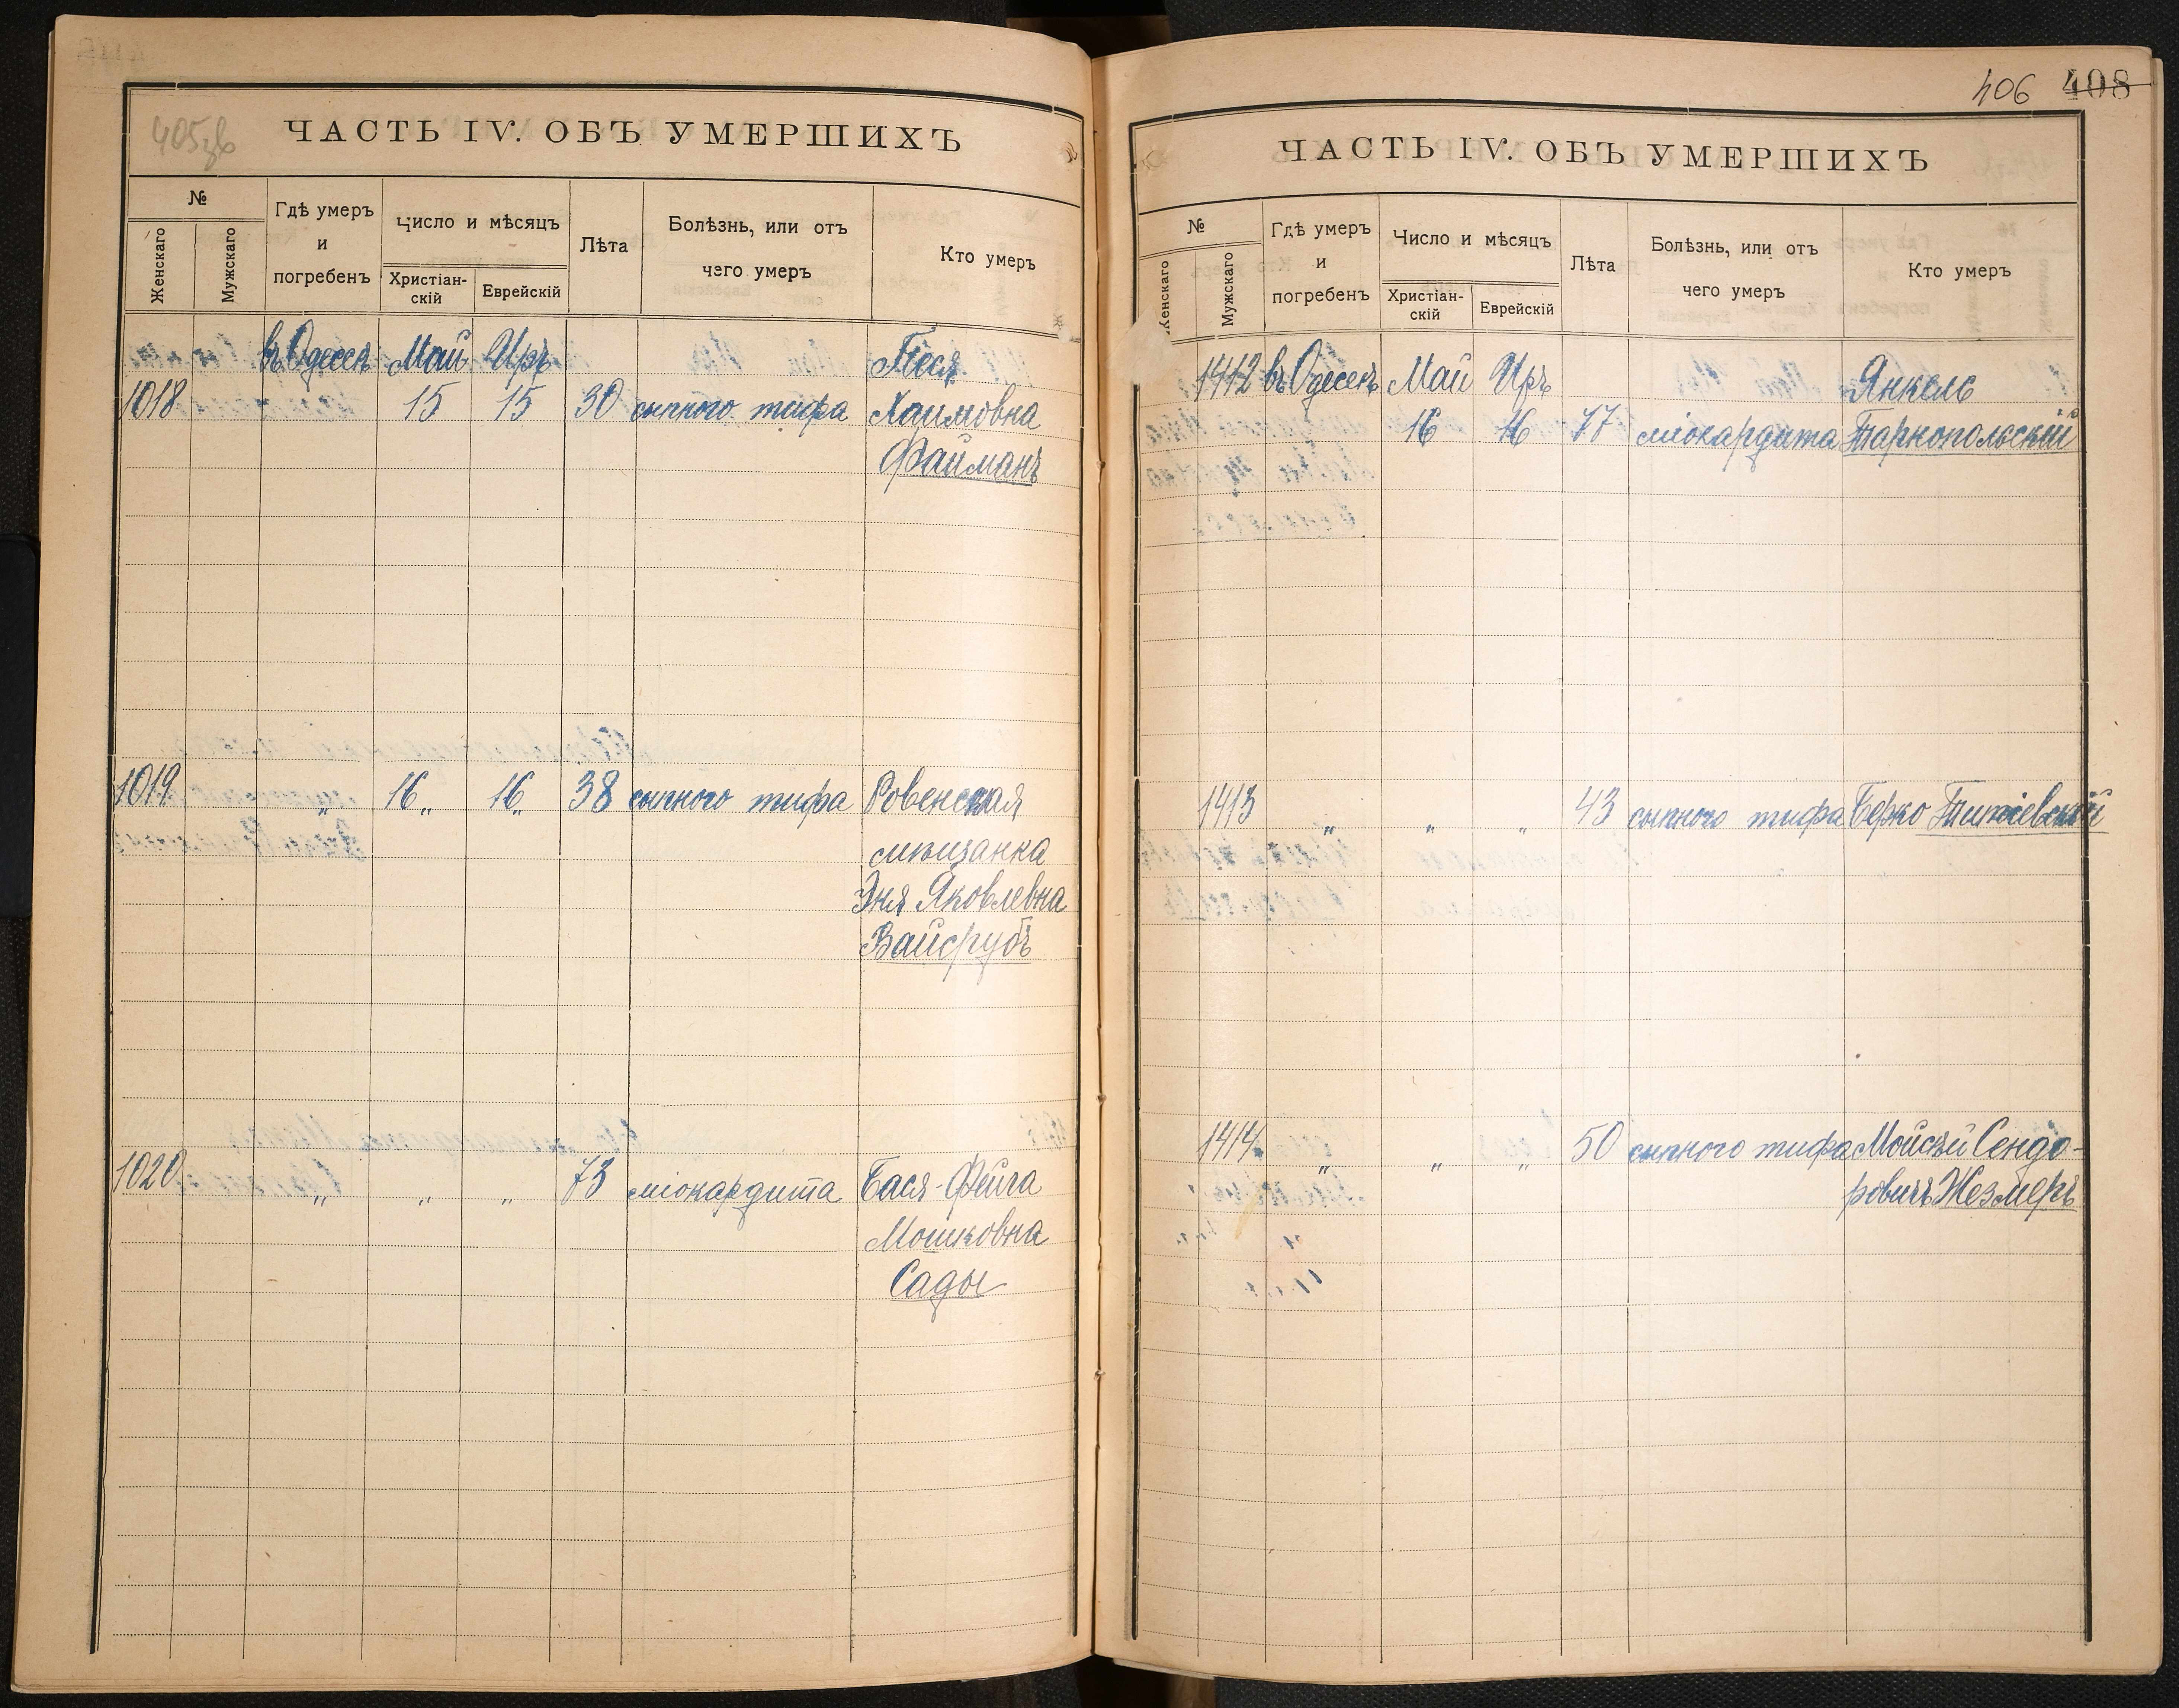 405зв
ЧАСТЬ IV. ОБЪ УМЕРШИХЪ
№
Женскаго
Мужскаго
Гдѣ умеръ
и
погребенъ
Число и мѣсяцъ
Христіан-
скій
Еврейскій
Лѣта
Болѣзнь, или отъ
чего умеръ
Кто умеръ
въ Одессѣ Май Иръ Песя
1018 15 15 30 сыпного тифа Хаимовна
Файманъ
1019 " 16 " 16 " 38 сыпного тифа Ровенская
мѣщанка
Эня Яковлевна
Вайсрубъ
1020 " " " 73 міокардита Бася-Фейга
Мошковна
Сады
406 408
ЧАСТЬ IV. ОБЪ УМЕРШИХЪ
№
Женскаго
Мужскаго
Гдѣ умеръ
и
погребенъ
Число и мѣсяцъ
Христіан-
скій
Еврейскій
Лѣта
Болѣзнь, или отъ
чего умеръ
Кто умеръ
1412 въ Одессѣ Май Иръ Янкель
16 16 77 міокардита Тарнопольскій
1413 " " " 43 сыпного тифа Берко Титіевскій
1414 " " " 50 сыпного тифа Мойсѣй Сендо-
ровичъ Жезмеръ